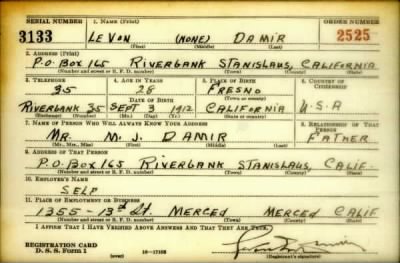 SERIAL NUMBER 1. NAME (Print) ORDER NUMBER
3133 LEVON (NONE) DAMIR 2525
(First) (Middle) (Last)
2. ADDRESS (Print)
P.O. BOX 165 RIVERBANK STANISLAUS, CALIFORNIA
(Number and street or R. F. D. number) (Town) (County) (State)
3. TELEPHONE 4. AGE IN YEARS 5. PLACE OF BIRTH 6. COUNTRY OF CITIZENSHIP
35 28 FRESNO
DATE OF BIRTH (Town or county)
RIVERBANK 35 SEPT 3 1912 CALIFORNIA U.S.A
(Exchange) (Number) (Mo.) (Day) (Yr.) (State or country)
7. NAME OF PERSON WHO WILL ALWAYS KNOW YOUR ADDRESS 8. RELATIONSHIP OF THAT PERSON
MR. M. J. DAMIR FATHER
(Mr., Mrs., Miss) (First) (Middle) (Last)
9. ADDRESS OF THAT PERSON
P.O. BOX 165 RIVERBANK STANISLAUS, CALIF.
(Number and street or R. F. D. number) (Town) (County) (State)
10. EMPLOYER'S NAME
SELF
11. PLACE OF EMPLOYMENT OR BUSINESS
1355-13th St. MERCED MERCED CALIF
(Number and street or R. F. D. number) (Town) (County) (State)
I AFFIRM THAT I HAVE VERIFIED ABOVE ANSWERS AND THAT THEY ARE TRUE.
REGISTRATION CARD
D. S. S. Form 1 (over) (Registrant's signature)